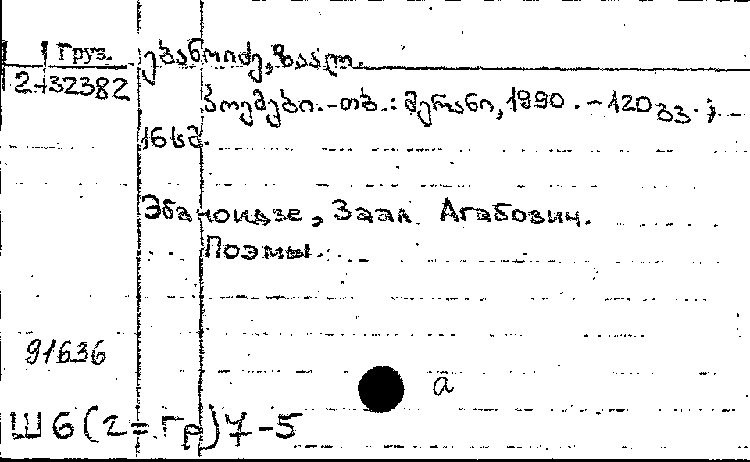 Груз. ებანოიძე, ზაალ.
2-32382
პოემები. - თბ. : მერანი, 1990. - 120 გვ. ;
16 სმ.
Эбаноидзе, Заал Агабович.
Поэмы.
91636
a
Ш6(2=Гр)7-5